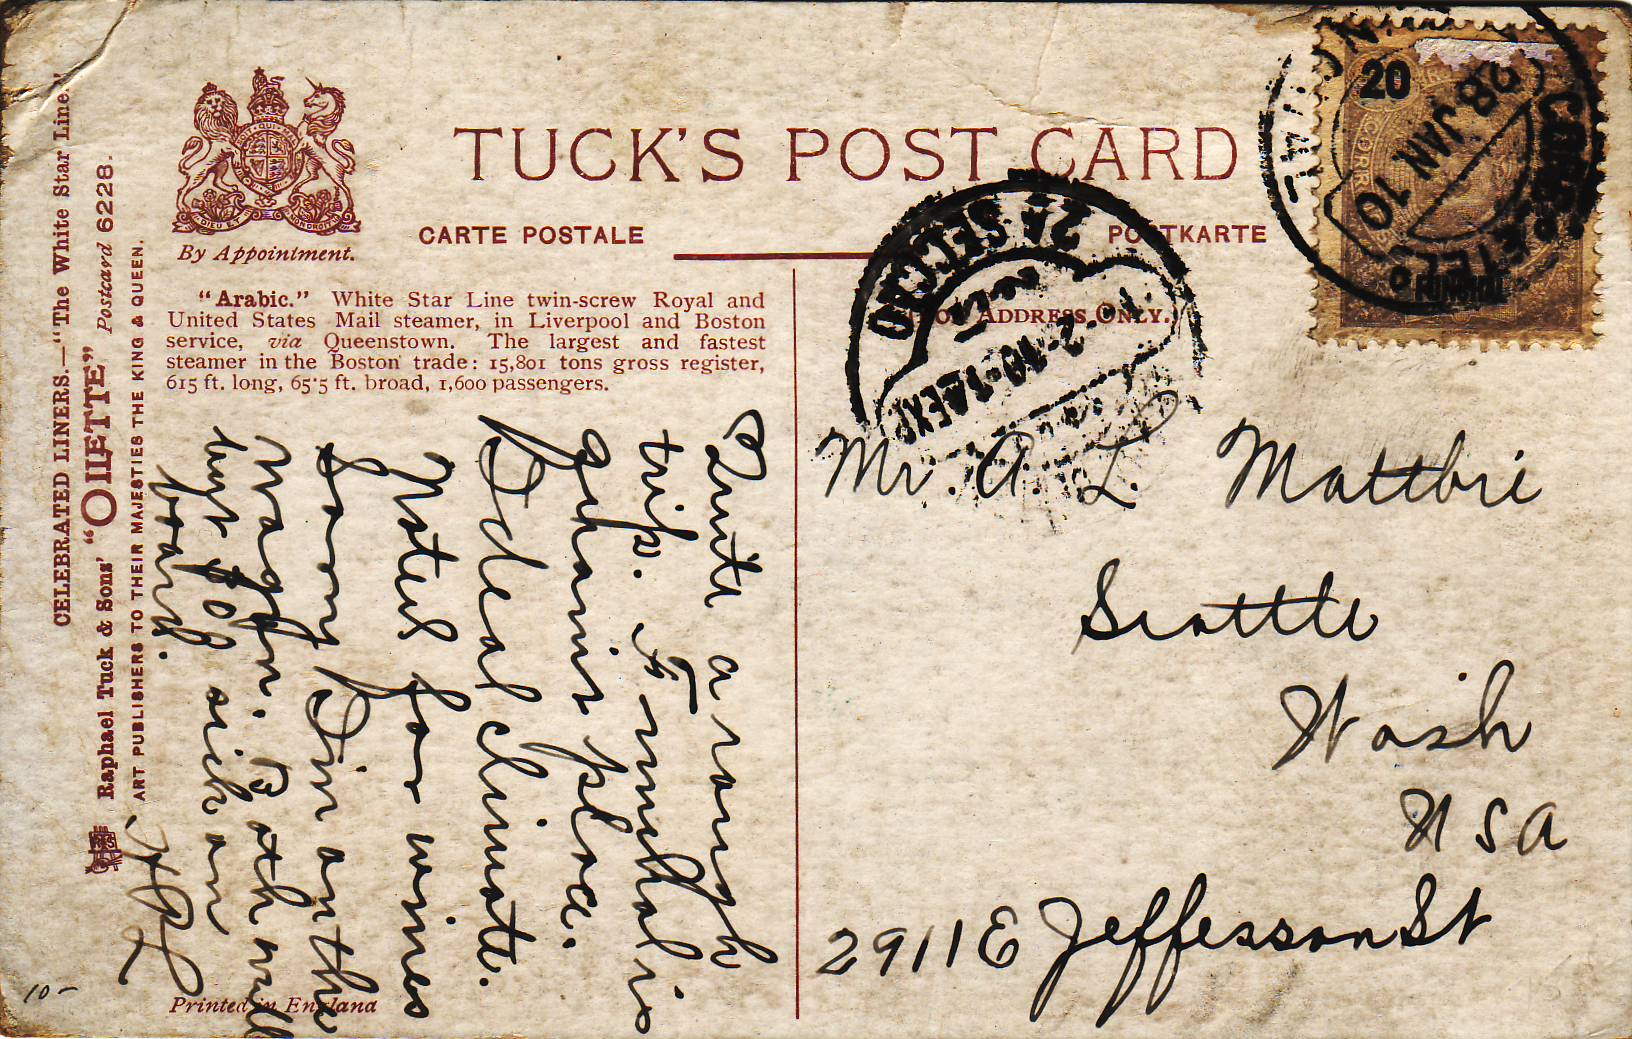 TUCK'S POST CARD
CARTE POSTALE
POSTKARTE
By Appointment.
"Arabic." White Star Line twin-screw Royal and
United States Mail steamer, in Liverpool and Boston
service, via Queenstown. The largest and fastest
steamer in the Boston trade: 15,801 tons gross register,
615 ft. long, 65·5 ft. broad, 1,600 passengers.
ADDRESS ONLY.
CELEBRATED LINERS.—"The White Star Line."
Raphael Tuck & Sons' "OILETTE" Postcard 6228.
ART PUBLISHERS TO THEIR MAJESTIES THE KING & QUEEN.
Quite a rough
trip. Funchal is
quaint place.
Ideal climate.
Noted for wines
on the
Both well
sick on
board.
Printed in England
10-
20
28 JAN 10
FUNCHAL
2A SECCAO
Mr. A. L.
Seattle
Wash
USA
2911 E Jefferson St